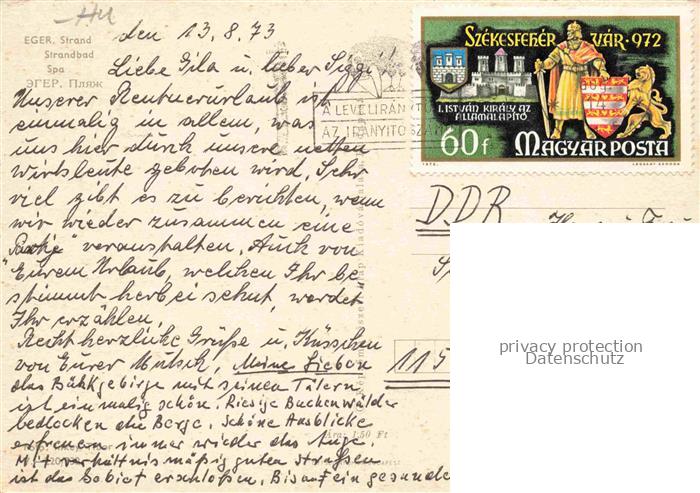 EGER, Strand
Strandbad
Spa
ЭГЕР. Пляж
den 13.8.73
Liebe Gila u. lieber Siggi!
Unserer Rentnerurlaub ist
einmalig in allem, was
uns hier durch unsere netten
Wirtsleute geboten wird. Sehr
viel gibt es zu berichten, wenn
wir wieder zusammen eine
"Party" veranstalten. Auch von
Eurem Urlaub, welchen Ihr be-
stimmt herbei sehnt, werdet
Ihr erzählen.
Recht herzliche Grüße u. Küsschen
von Eurer Mutsch. Meine Lieben
das Bükkgebirge mit seinen Tälern
ist einmalig schön. Riesige Buchenwälder
bedecken die Berge. Schöne Ausblicke
erfreuen immer wieder das Auge.
Mit verhältnismäßig guten Straßen
ist das Gebiet erschloßen. Bis auf ein gesunde
Ára: 1,50 Ft
SZÉKESFEHÉRVÁR · 972
I. ISTVÁN KIRÁLY AZ
ÁLLAMALAPÍTÓ
60f MAGYAR POSTA
1972.
A LEVÉL IRÁNYÍTÓJA
AZ IRÁNYÍTÓSZÁM
DDR
115
privacy protection
Datenschutz